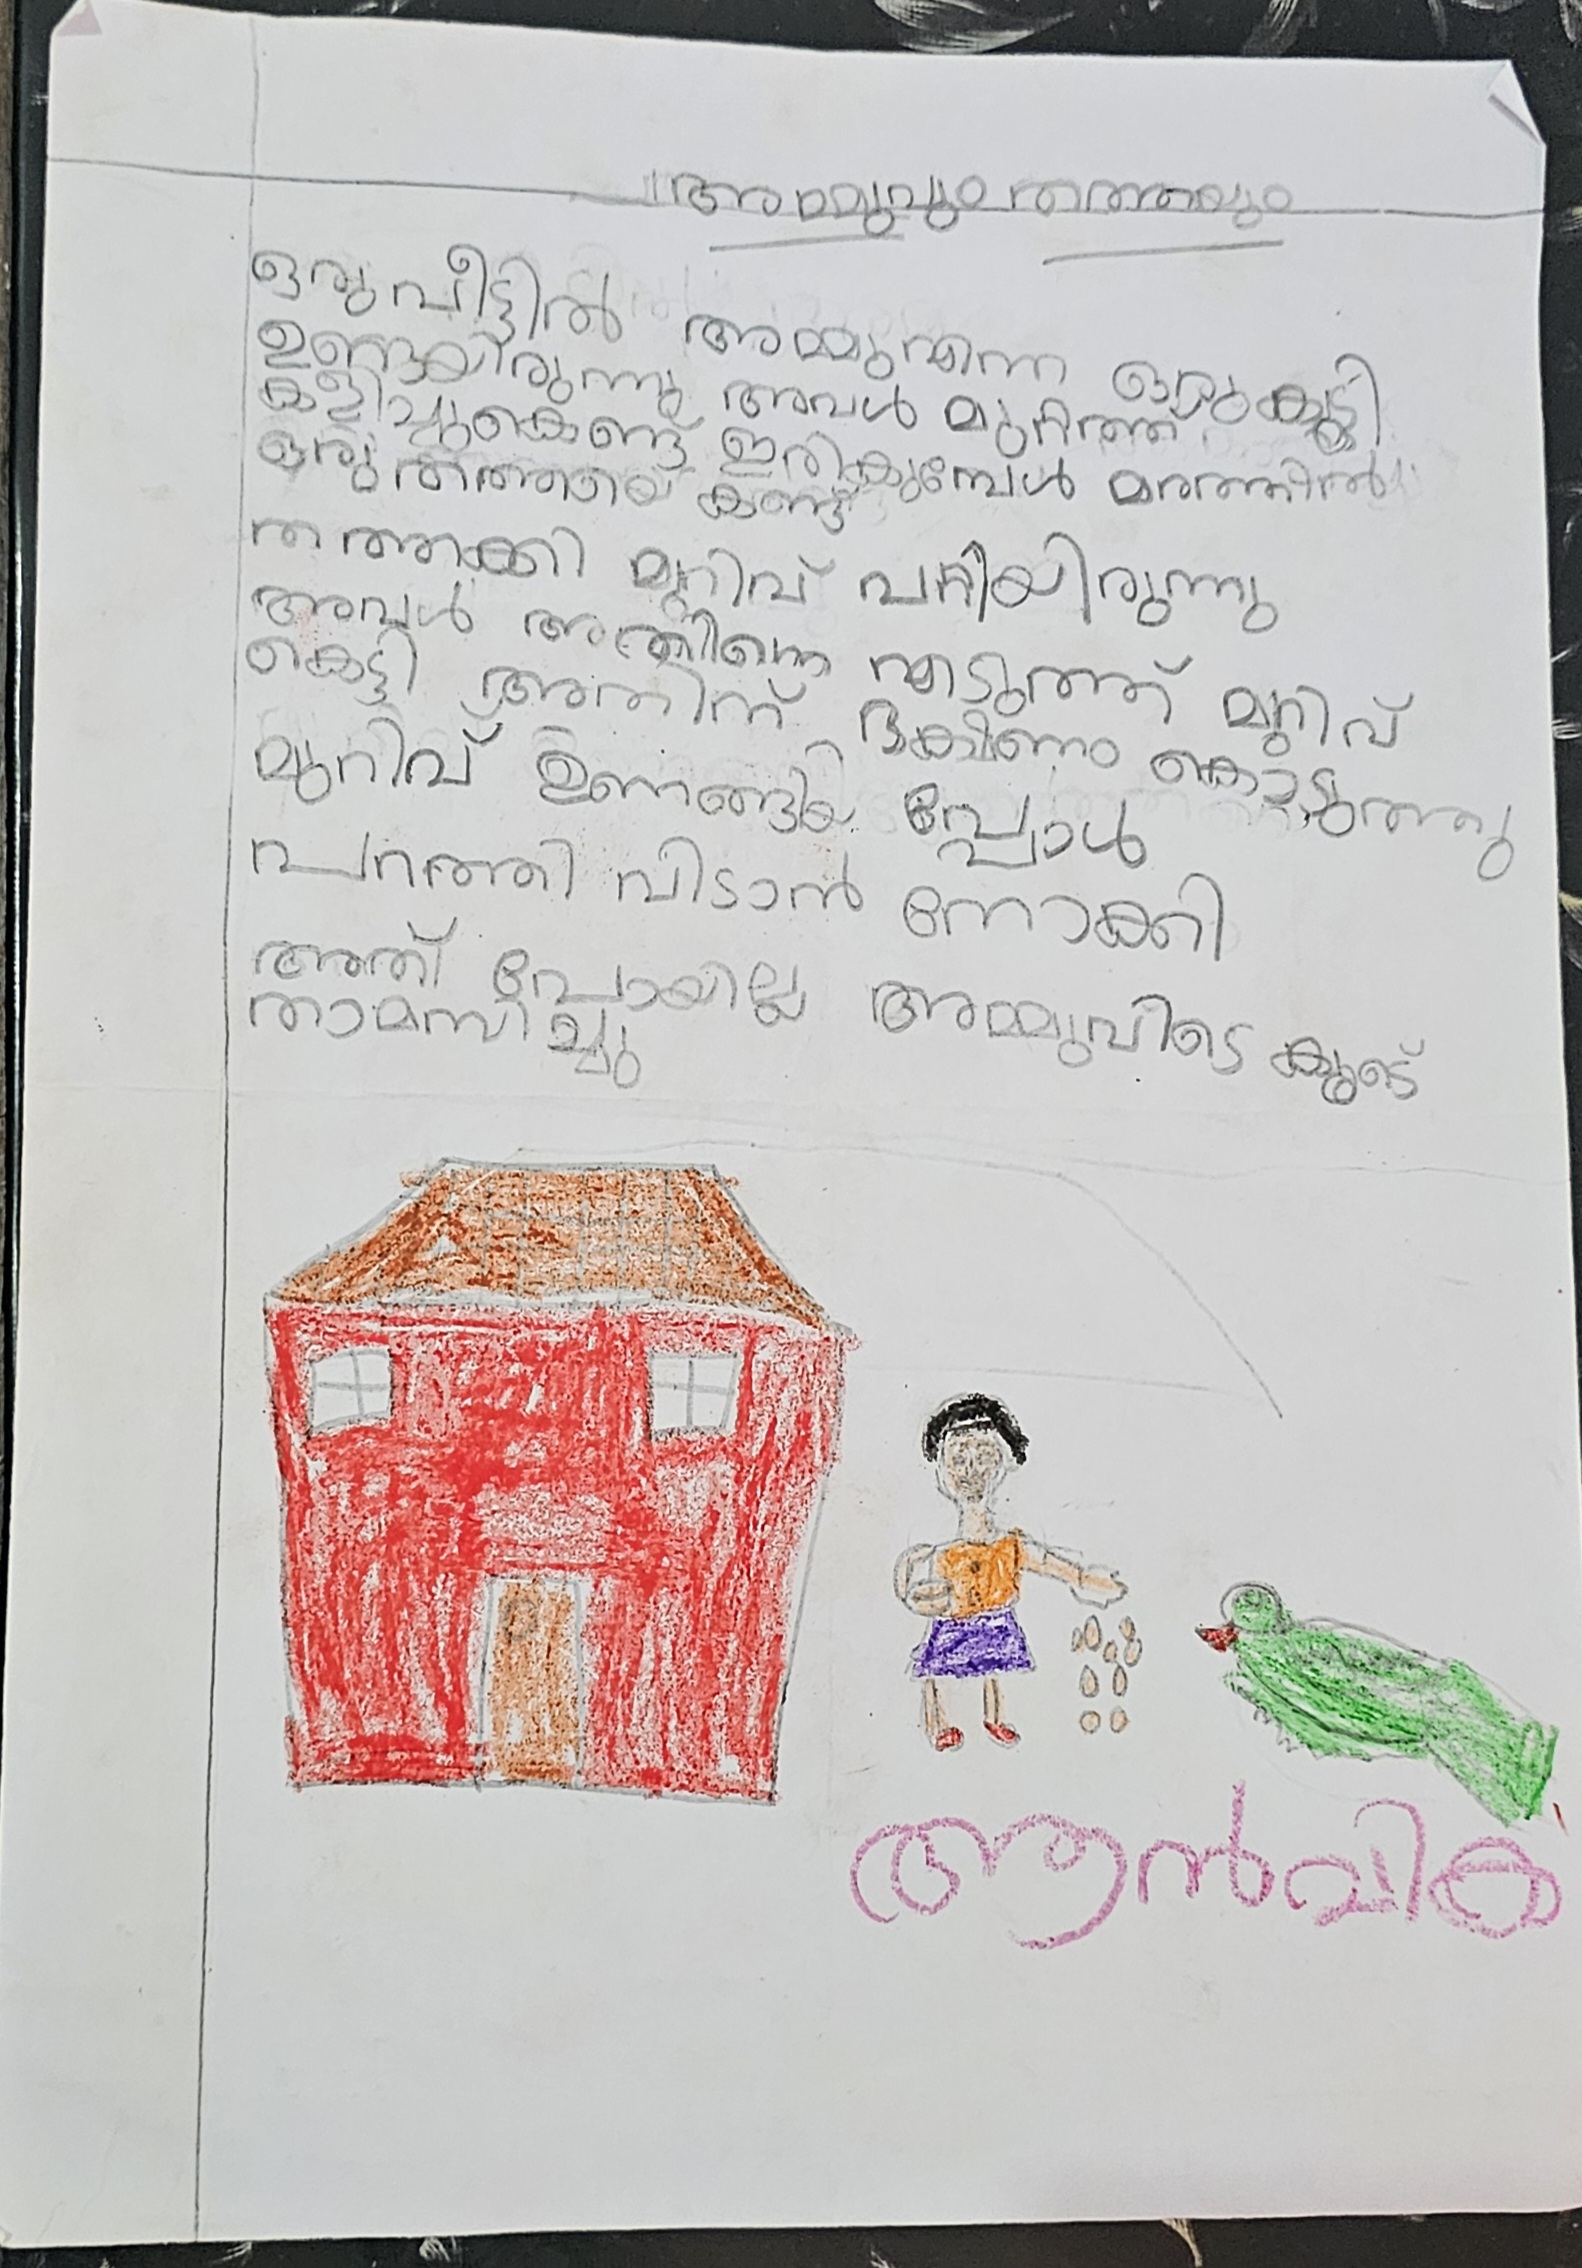 അമ്മുവും തത്തയും
ഒരു വീട്ടിൽ അമ്മുഎന്ന ഒരുകുട്ടി
ഉണ്ടായിരുന്നു അവൾ മുറ്റത്ത്
കളിച്ചുകെണ്ട് ഇരികുമ്പേൾ മരത്തിൽ
ഒരു തത്തയെ കണ്ടു
തത്തക്കി മുറിവ് പറ്റിയിരുന്നു
അവൾ അതിനെ എടുത്ത് മുറിവ്
കെട്ടി അതിന് ഭക്ഷണം കൊടുത്തു
മുറിവ് ഉണങ്ങിയ പ്പോൾ
പറത്തി വിടാൻ നോക്കി
അത് പോയില്ല അമ്മുവിടെ കൂടെ
താമസിച്ചു
ആൻവിക